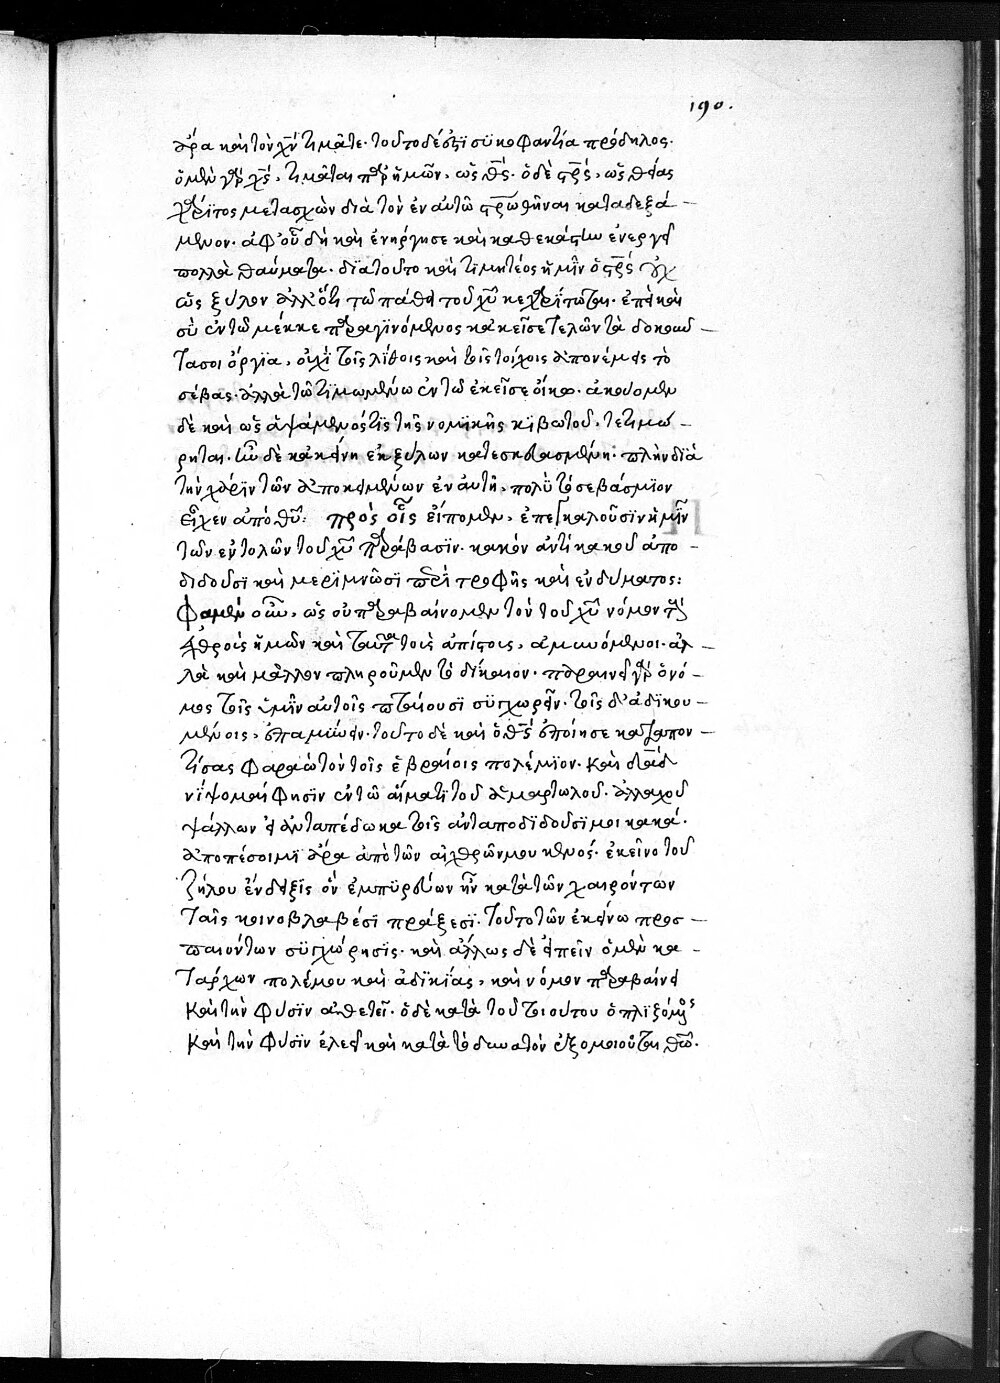 190.
ἄρα καὶ τὸν χν τιμᾶτε· τοῦτο δέ ἐστι συκοφαντία πρόδηλος·
ὁ μὲν γὰρ χς, τιμᾶται παρ' ἡμῶν, ὡς θς· ὁ δὲ στρς, ὡς θείας
χάριτος μετασχὼν διὰ τὸν ἐν αὐτῶ στρωθῆναι καταδεξά-
μενον· ἀφ' οὗ δὴ καὶ ἐνήργησε καὶ καθεκάστην ἐνεργεῖ
πολλὰ θαύματα· διατοῦτο καὶ τιμητέος ἡμῖν ὁ στρς οὐχ
ὡς ξύλον ἀλλ' ὅτι τῶ πάθει τοῦ χυ κεχαρίτωται· ἐπεὶ καὶ
σὺ ἐν τῶ μέκκε παραγινόμενος κἀκεῖσε τελῶν τὰ δοκοῦν-
τα σοι ὄργια, οὐχὶ τοῖς λίθοις καὶ τοῖς τοίχοις ἀπονέμεις τὸ
σέβας· ἀλλὰ τῶ τιμωμένω ἐν τῶ ἐκεῖσε οἴκω· ἀκούομεν
δὲ καὶ ὡς ἁψάμενός τις τῆς νομικῆς κιβωτοῦ, τετιμώ-
ρηται· ἦν δὲ κἀκείνη ἐκ ξύλων κατεσκευασμένη· πλὴν διὰ
τὴν χάριν τῶν ἀποκειμένων ἐν αὐτῆ, πολὺ τὸ σεβάσμιον
εἶχεν ἀπὸ θυ: πρὸς οἷς εἴπομεν, ἐπεγκαλοῦσιν ἡμῖν
τῶν ἐντολῶν τοῦ χυ παράβασιν· κακὸν ἀντὶ κακοῦ ἀπο-
διδοῦσι καὶ μεριμνῶσι περὶ τροφῆς καὶ ἐνδύματος:
φαμὲν οὖν, ὡς οὐ παραβαίνομεν τὸν τοῦ χυ νόμον τοὺς
ἐχθροὺς ἡμῶν καὶ ταῦτα τοὺς ἀπίστους, ἀμυνόμενοι· ἀλ-
λὰ καὶ μᾶλλον πληροῦμεν τὸ δίκαιον· παραινεῖ γὰρ ὁ νό-
μος τοῖς ἡμῖν αὐτοῖς πταίουσι συγχωρεῖν· τοῖς δ' ἀδικου-
μένοις, ἐπαμύνειν· τοῦτο δὲ καὶ ὁ θς ἐποίησε καταπον-
τίσας φαραὼ τὸν τοῖς ἑβραίοις πολέμιον· καὶ δαδ
νίψομαί φησιν ἐν τῶ αἵματι τοῦ ἁμαρτωλοῦ· ἀλλαχοῦ
ψάλλων εἰ ἀνταπέδωκα τοῖς ἀνταποδιδοῦσί μοι κακά·
ἀποπέσοιμι ἄρα ἀπὸ τῶν αἰχθρῶν μου κενός· ἐκεῖνο τοῦ
ζήλου ἔνδειξις ὃν ἐμπυρεύων ἦν κατὰ τῶν χαιρόντων
ταῖς κοινοβλαβέσι πράξεσι· τοῦτο τῶν ἐκείνω προσ-
παιόντων συγχώρησις· καὶ ἄλλως δὲ εἰπεῖν ὁ μὲν κα-
τάρχων πολέμου καὶ ἀδικίας, καὶ νόμον παραβαίνει
καὶ τὴν φύσιν ἀθετεῖ· ὁ δὲ κατὰ τοῦ τοιούτου ὁπλιζόμενος
καὶ τὴν φύσιν ἐλεεῖ καὶ κατὰ τὸ δυνατὸν ἐξομοιοῦται θω·